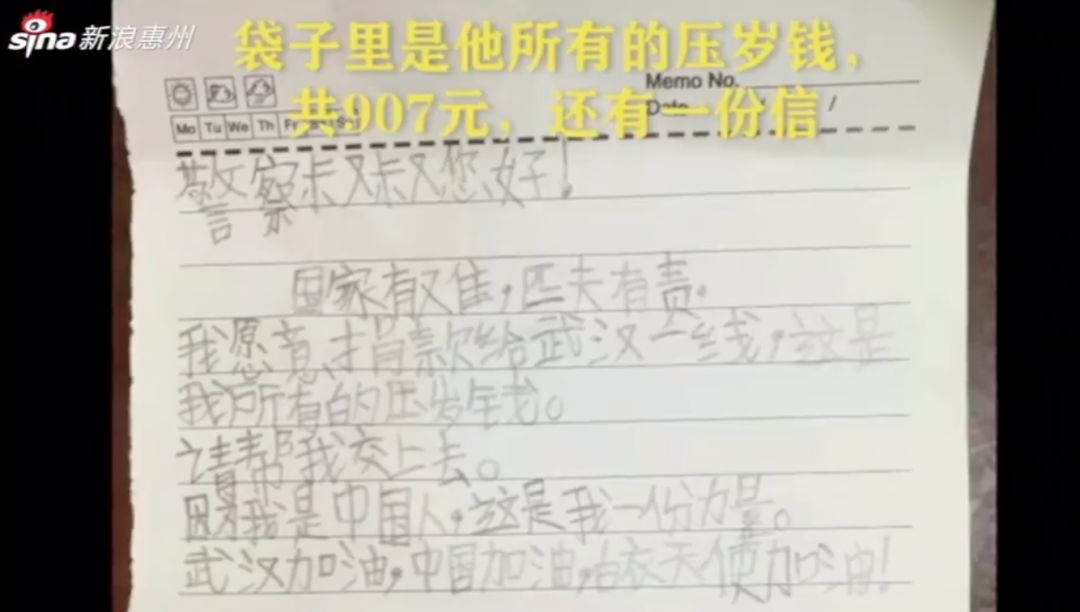 sina 新浪惠州
袋子里是他所有的压岁钱，
共907元，还有一份信
Memo No.
Date / /
Mo Tu We Th Fr Sa Su
警察叔叔您好！
国家有难，匹夫有责。
我愿意捐款给武汉一线，这是
我所有的压岁钱。
请帮我交上去。
因为我是中国人，这是我一份力量。
武汉加油，中国加油，白衣天使加油！